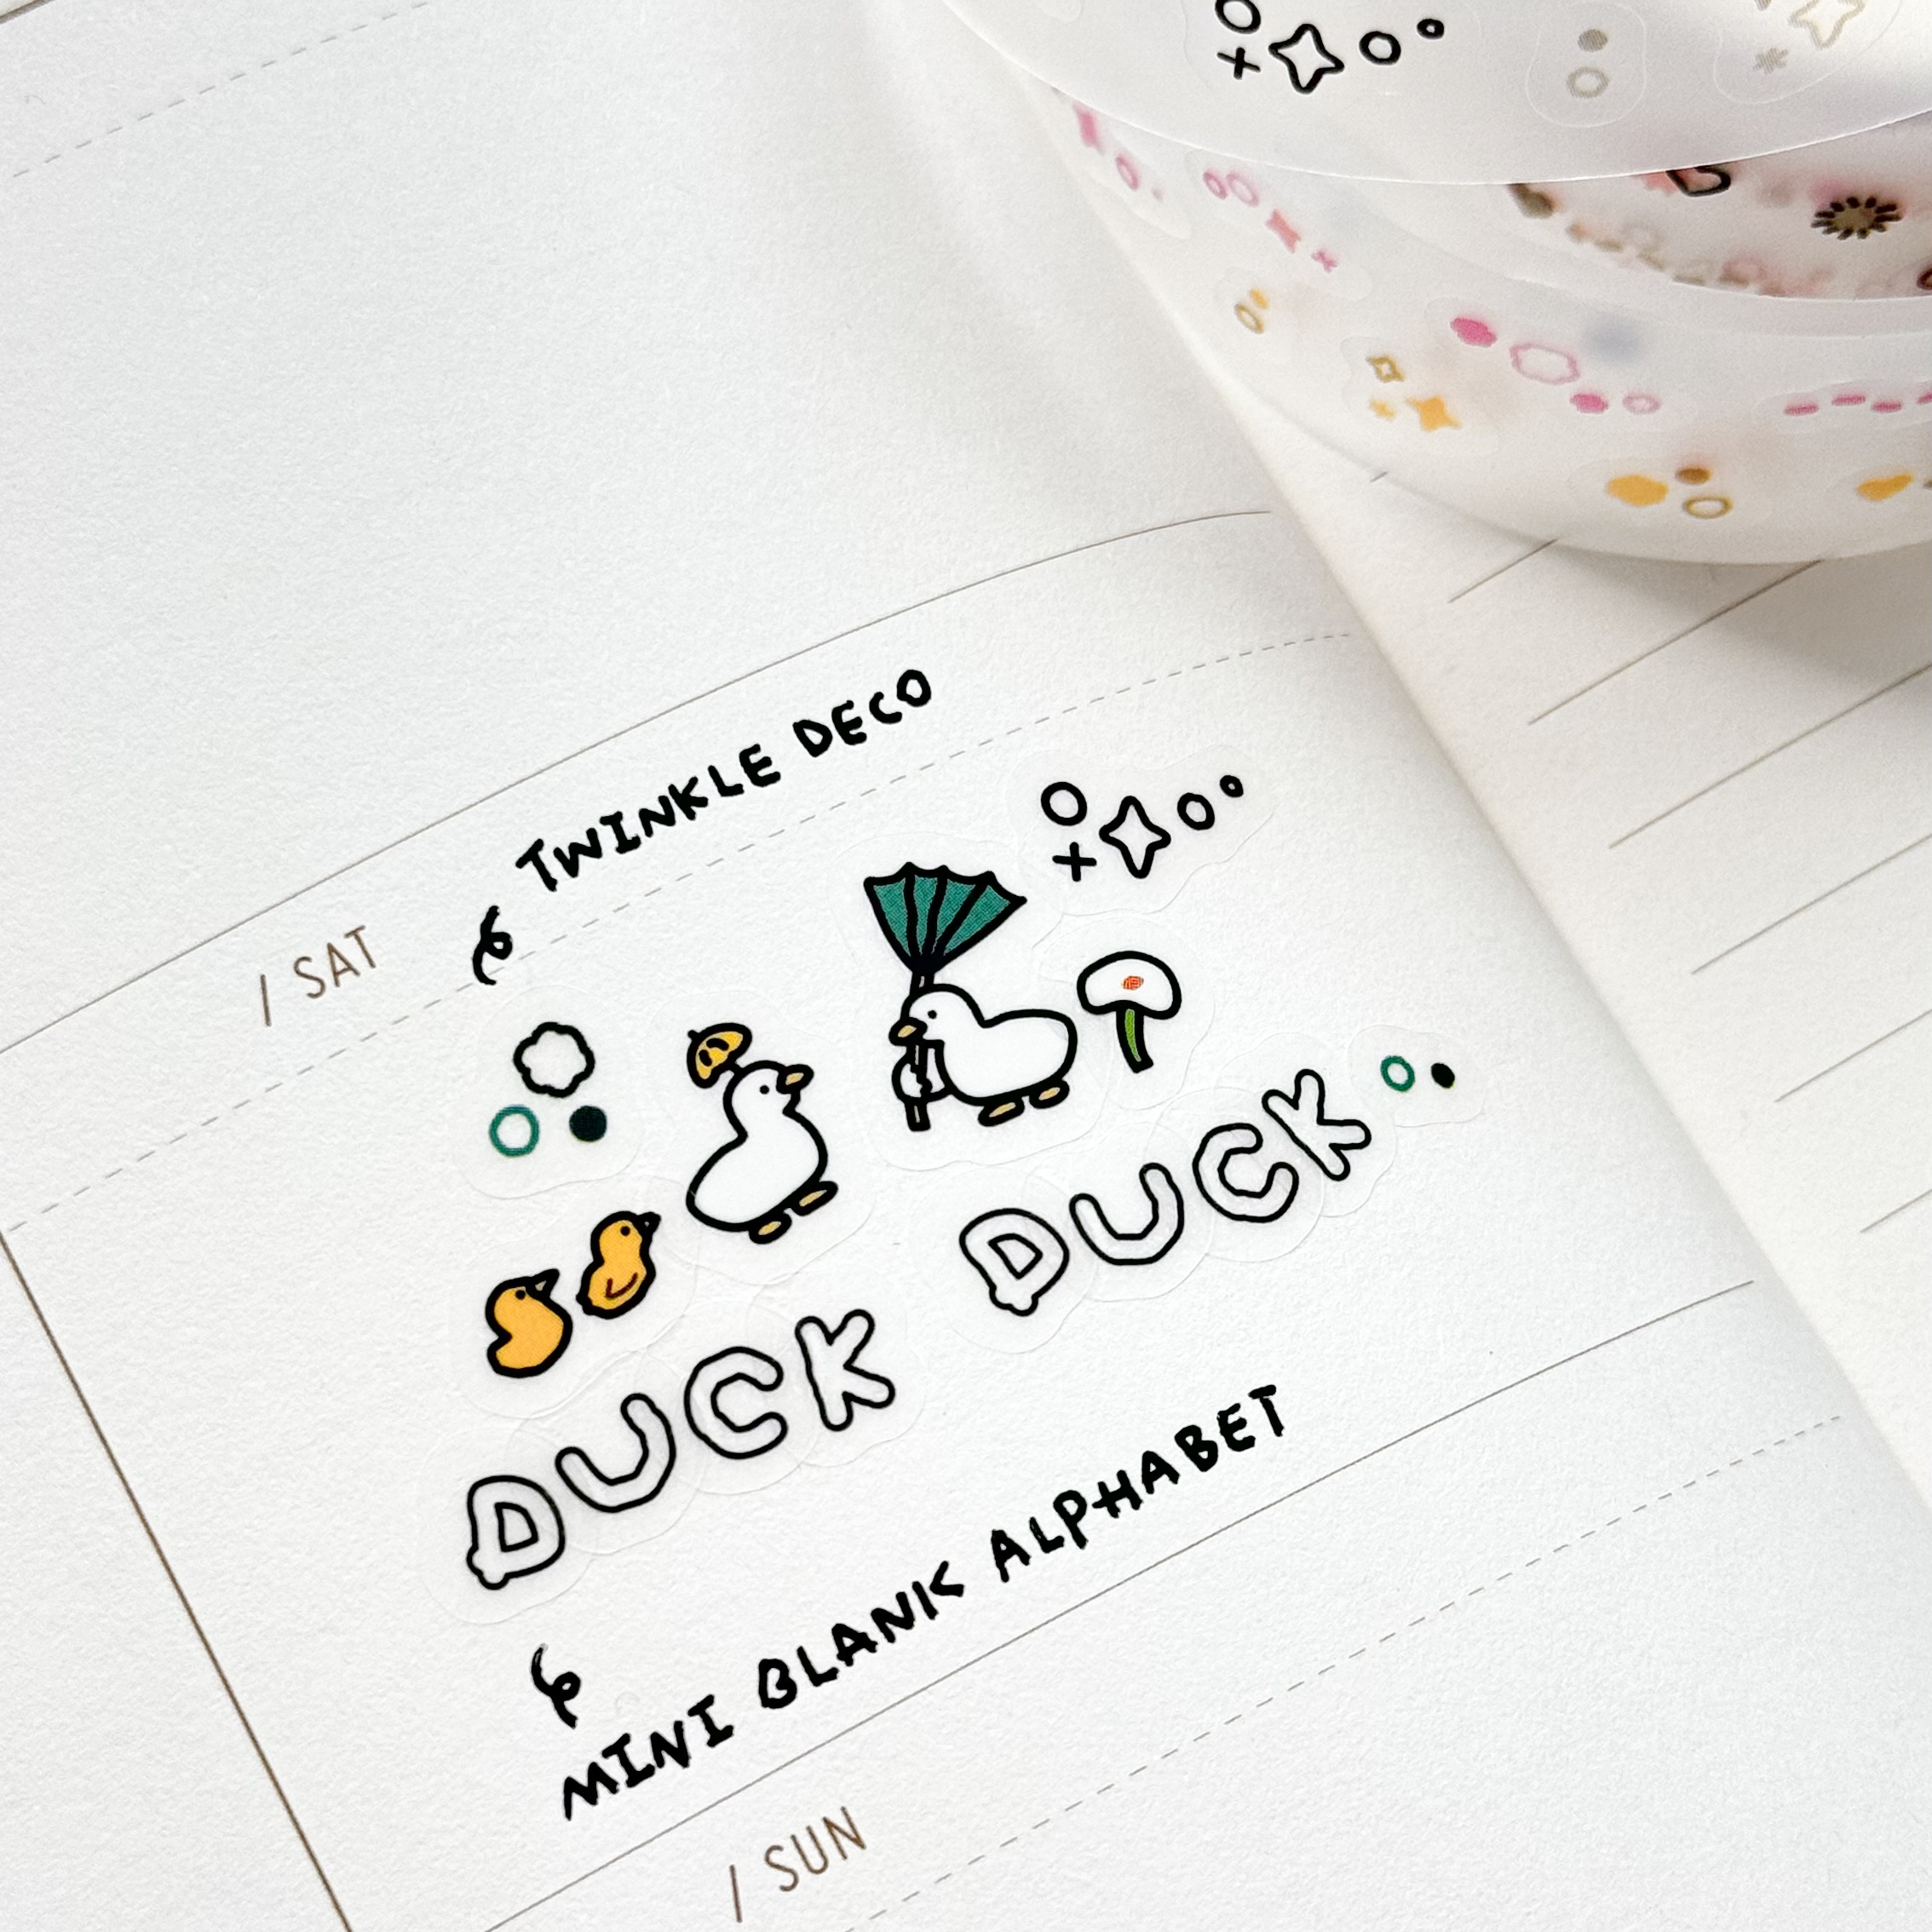 TWINKLE DECO
/ SAT
DUCK DUCK
MINI BLANK ALPHABET
/ SUN